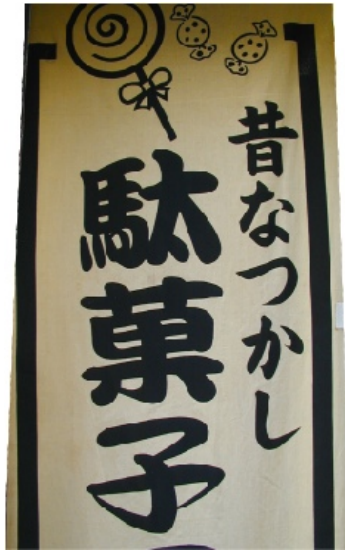 昔なつかし
駄菓子